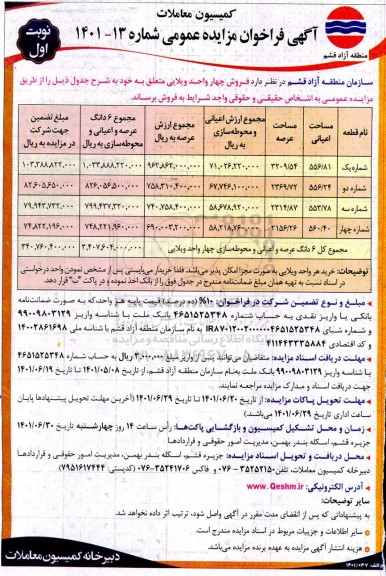 کمیسیون معاملات
آگهی فراخوان مزایده عمومی شماره ۱۳- ۱۴۰۱
نوبت اول
منطقه آزاد قشم
سازمان منطقه آزاد قشم در نظر دارد فروش چهار واحد ویلایی متعلق به خود به شرح جدول ذیل را از طریق
مزایده عمومی به اشخاص حقیقی و حقوقی واجد شرایط به فروش برساند.
نام قطعه | مساحت اعیانی | مساحت عرصه | مجموع ارزش اعیانی و محوطه‌سازی به ریال | مجموع ارزش عرصه به ریال | مجموع ۶ دانگ عرصه و اعیانی و محوطه‌سازی به ریال | مبلغ تضمین جهت شرکت در مزایده به ریال
شماره یک | ۵۵۶/۸۱ | ۳۲۰۹/۵۴ | ۷۱,۰۲۶,۲۲۰,۰۰۰ | ۹۶۲,۸۶۲,۰۰۰,۰۰۰ | ۱,۰۳۳,۸۸۸,۲۲۰,۰۰۰ | ۱۰۳,۳۸۸,۸۲۲,۰۰۰
شماره دو | ۵۵۶/۲۴ | ۲۳۶۹/۷۲ | ۶۷,۷۴۶,۱۰۰,۰۰۰ | ۷۵۸,۳۱۰,۴۰۰,۰۰۰ | ۸۲۶,۰۵۶,۵۰۰,۰۰۰ | ۸۲,۶۰۵,۶۵۰,۰۰۰
شماره سه | ۵۵۳/۷۸ | ۲۳۱۴/۸۷ | ۵۸,۶۷۸,۹۲۰,۰۰۰ | ۷۴۰,۷۵۸,۴۰۰,۰۰۰ | ۷۹۹,۴۳۷,۳۲۰,۰۰۰ | ۷۹,۹۴۳,۷۳۲,۰۰۰
شماره چهار | ۵۶۰/۴۰ | ۲۱۵۶/۲۶ | ۵۸,۲۱۸,۷۶۰,۰۰۰ | ۶۹۰,۰۰۳,۲۰۰,۰۰۰ | ۷۴۸,۲۲۱,۹۶۰,۰۰۰ | ۷۴,۸۲۲,۱۹۶,۰۰۰
مجموع کل ۶ دانگ عرصه و اعیانی و محوطه‌سازی چهار واحد ویلایی | ۳,۴۰۷,۶۰۴,۰۰۰,۰۰۰ | ۳۴۰,۷۶۰,۴۰۰,۰۰۰
توضیحات: خرید هر واحد ویلایی به صورت مجزا امکان پذیر می‌باشد. فلذا خریدار می‌بایستی پس از مشخص نمودن واحد درخواستی
در اسناد نسبت به تهیه همان مبلغ ضمانت‌نامه مندرج در جدول فوق را از بانک اخذ نموده و در پاکت "ب" قرار دهد.
مبلغ و نوع تضمین شرکت در فراخوان: ۱۰٪
بانکی یا واریز نقدی به حساب شماره ۴۶۵۱۵۲۵۳۴۸ بانک ملت با شناسه واریز ۹۹۰۰۹۸۰۳۱۲۹
و شماره شبای به نام سازمان منطقه آزاد قشم با شناسه ملی ۱۴۰۰۲۸۶۱۶۹۸
و کد اقتصادی ۴۱۱۴۴۳۳۳۵۸۸۴
مهلت دریافت اسناد مزایده: متقاضیان می‌توانند پس از واریز مبلغ ۳,۰۰۰,۰۰۰ ریال به حساب شماره ۴۶۵۱۵۲۵۳۴۸
با شناسه واریز ۹۹۰۰۹۸۰۳۱۲۹ بانک ملت بنام سازمان منطقه آزاد قشم، از تاریخ ۱۴۰۱/۰۵/۰۸ تا تاریخ ۱۴۰۱/۰۶/۱۹
جهت دریافت اسناد و مدارک مزایده مراجعه نمایند.
مهلت تحویل پاکات مزایده: از تاریخ ۱۴۰۱/۰۶/۲۰ تا تاریخ ۱۴۰۱/۰۶/۲۹ (آخرین مهلت تحویل پیشنهادها پایان
ساعت اداری تاریخ ۱۴۰۱/۰۶/۲۹ می‌باشد).
زمان و محل تشکیل کمیسیون و بازگشایی پاکت‌ها: رأس ساعت ۱۴ روز چهارشنبه تاریخ ۱۴۰۱/۰۶/۳۰
جزیره قشم، اسکله بندر بهمن، مدیریت امور حقوقی و قراردادها
محل دریافت و تحویل اسناد مزایده: جزیره قشم، اسکله بندر بهمن، مدیریت امور حقوقی و قراردادها
دبیرخانه کمیسیون معاملات، تلفن: ۳۵۲۵۲۱۵۰ - ۰۷۶ و فاکس ۳۵۲۴۱۷۰۶-۰۷۶ (کدپستی: ۷۹۵۱۶۱۷۴۴۴)
آدرس الکترونیکی: www.Qeshm.ir
سایر توضیحات:
به پیشنهاداتی که پس از انقضای مدت مقرر در آگهی واصل شود، ترتیب اثر داده نخواهد شد.
سایر اطلاعات و جزییات مربوط در اسناد مزایده مندرج است.
هزینه انتشار آگهی مزایده به عهده برنده مزایده می‌باشد.
دبیرخانه کمیسیون معاملات